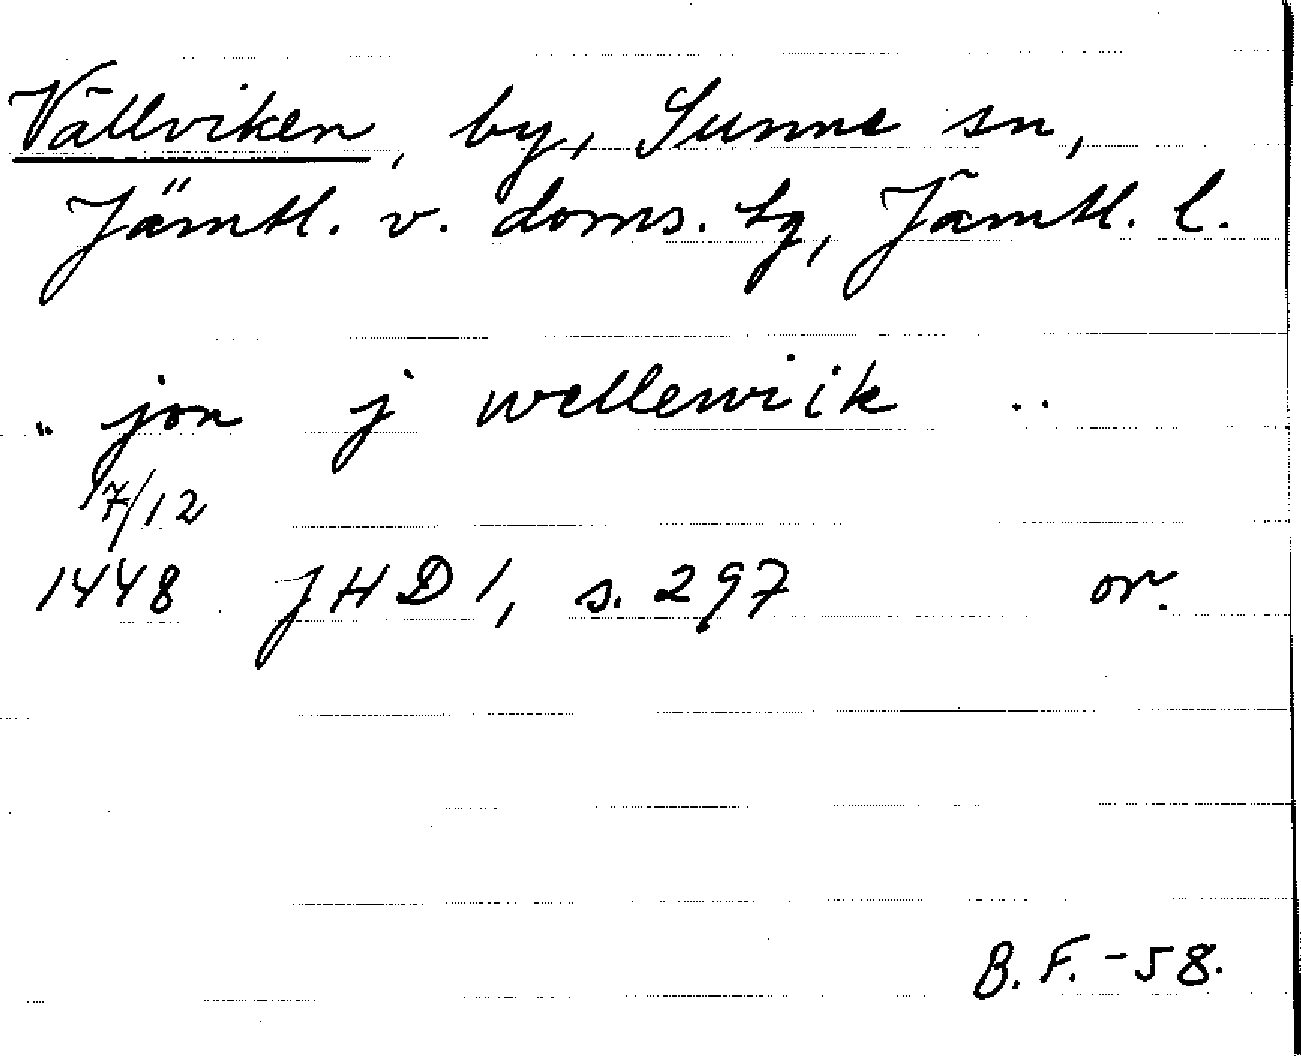 Vällviken, by, Sunne sn,
Jämtl. v. doms. tg, Jämtl. l.
.. jon j wellewiik ..
17/12
1448 JHD 1, s. 297 or.
B. F. -58.